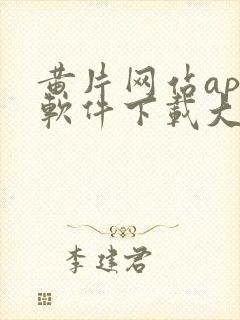 黄片网佔ap
軟件下載大
李建君